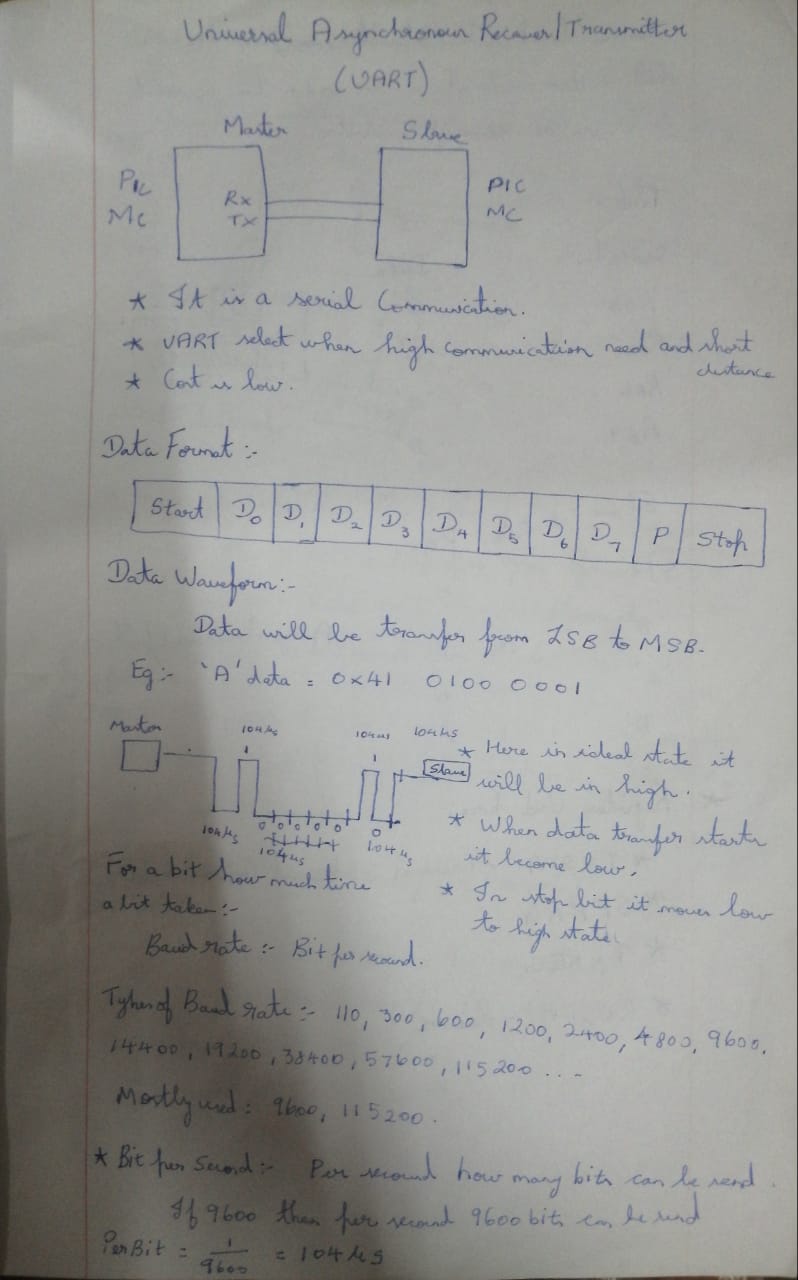 Universal Asynchronous Receiver/Transmitter
(UART)
Master Slave
PIC MC
Rx
TX
PIC MC
* It is a serial Communication.
* UART select when high communication need and short distance
* Cost is low.
Data Format :-
Start D0 D1 D2 D3 D4 D5 D6 D7 P Stop
Data Waveform:-
Data will be transfer from LSB to MSB.
Eg:- 'A' data = 0x41 0100 0001
Master 104µs 104µs 104µs
1 1
Slave
0 0 0 0 0 0
104µs 104µs 104µs
* Here in ideal state it
will be in high.
* When data transfer starts
it become low.
* In stop bit it moves low
to high state.
For a bit how much time
a bit taken:-
Baud rate :- Bit per second.
Types of Baud rate :- 110, 300, 600, 1200, 2400, 4800, 9600,
14400, 19200, 38400, 57600, 115200 ...
Mostly used : 9600, 115200.
* Bit per Second:- Per second how many bits can be send.
If 9600 then per second 9600 bits can be send
Per Bit = 1/9600 = 104µs